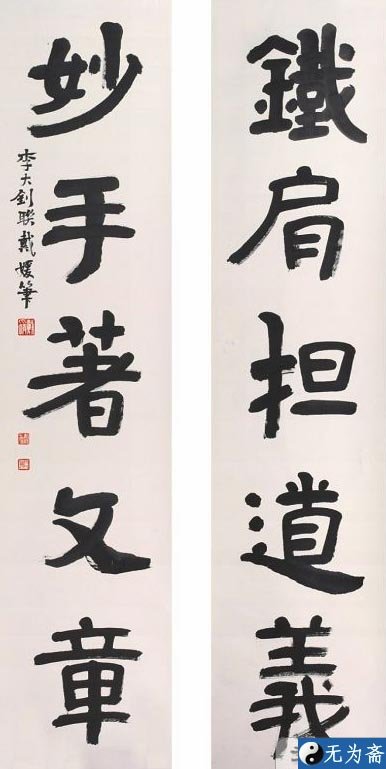 鐵肩担道義
妙手著文章
李大釗联戴媛筆
无为斋